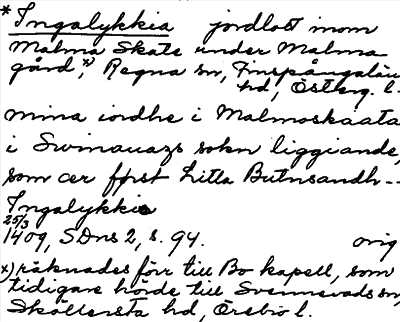 * Ingalykkia jordlott inom
Malma Skate under Malma
gård,x) Regna sn, Finspångalän
hd, Österg. l.
mina iordhe i Malmoskaata
i Swinauazs sokn liggiande,
som ær først Litla Butnsandh --
Ingalykkie
25/3
1409, SDns 2, s. 94. orig
x) räknades förr till Bo kapell, som
tidigare hörde till Svennevads sn,
Sköllersta hd, Örebro l.